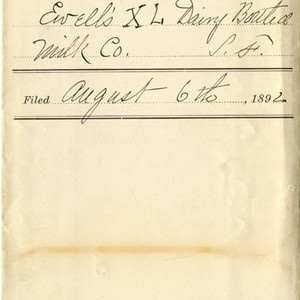 Ewell's X L Dairy Bottled
Milk Co. S. F.
Filed August 6th, 1892